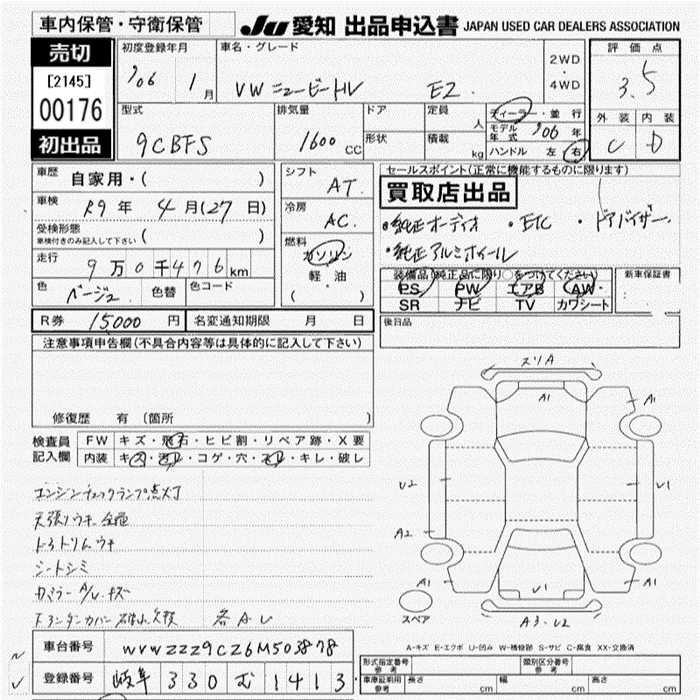 車内保管・守衛保管
Ju 愛知 出品申込書 JAPAN USED CAR DEALERS ASSOCIATION
売切
[2145]
00176
初出品
初度登録年月
'06 1月
車名・グレード
VW ニュービートル EZ
2WD・4WD
評価点
3.5
型式
9CBFS
排気量
1600 CC
ドア
形状
定員 人
積載 kg
ディーラー・並行
モデル年式 '06 年
ハンドル 左 右
外装 内装
C D
車歴 自家用・( )
車検 R9年 4月(27日)
受検形態
車検付きのみ記入して下さい ( )
走行 9万0千476km
色 ベージュ 色替 色コード
シフト AT
冷房 AC
燃料 ガソリン
軽・油
( )
セールスポイント(正常に機能するものに限ります)
買取店出品
・純正オーディオ ・ETC ・ドアバイザー
・純正アルミホイール
装備品(純正品に限り○をつけてください)
PS PW エアB AW
SR ナビ TV カワシート
新車保証書
R券 15000円 名変通知期限 月 日
後日品
注意事項申告欄(不具合内容等は具体的に記入して下さい)
修復歴 有 (箇所 )
検査員記入欄
FW キズ・飛石・ヒビ割・リペア跡・X要
内装 キズ・汚れ・コゲ・穴・スレ・キレ・破レ
エンジンチェックランプ点灯
天張リウキ 全面
トランクトリムウキ
シートシミ
スリA
A1
A1
A1
U2
U1
A2
A1
U1
A1
スペア
A3.U2
各AU
A-キズ E-エクボ U-凹み W-補修跡 S-サビ C-腐食 XX-交換済
車台番号 WVWZZZ9CZ6M503878
登録番号 岐阜 330 む 1413
形式指定番号 参考
類別区分番号 参考
車庫証明用 参考 長さ cm 幅 cm 高さ cm